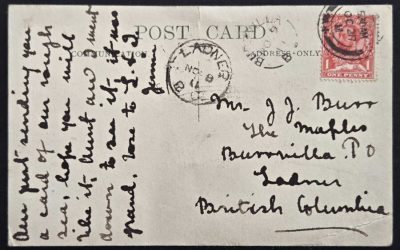 POST CARD
ADDRESS ONLY.
LADNER
NO 8
11
B.C
ONE PENNY
Am just sending you
a card of our rough
sea, hope you will
like it. Aunt and I went
down to see it. It was
grand. Love to
Mr. J. J. Burr
The Maples
Burrvilla P.O
Ladner
British Columbia